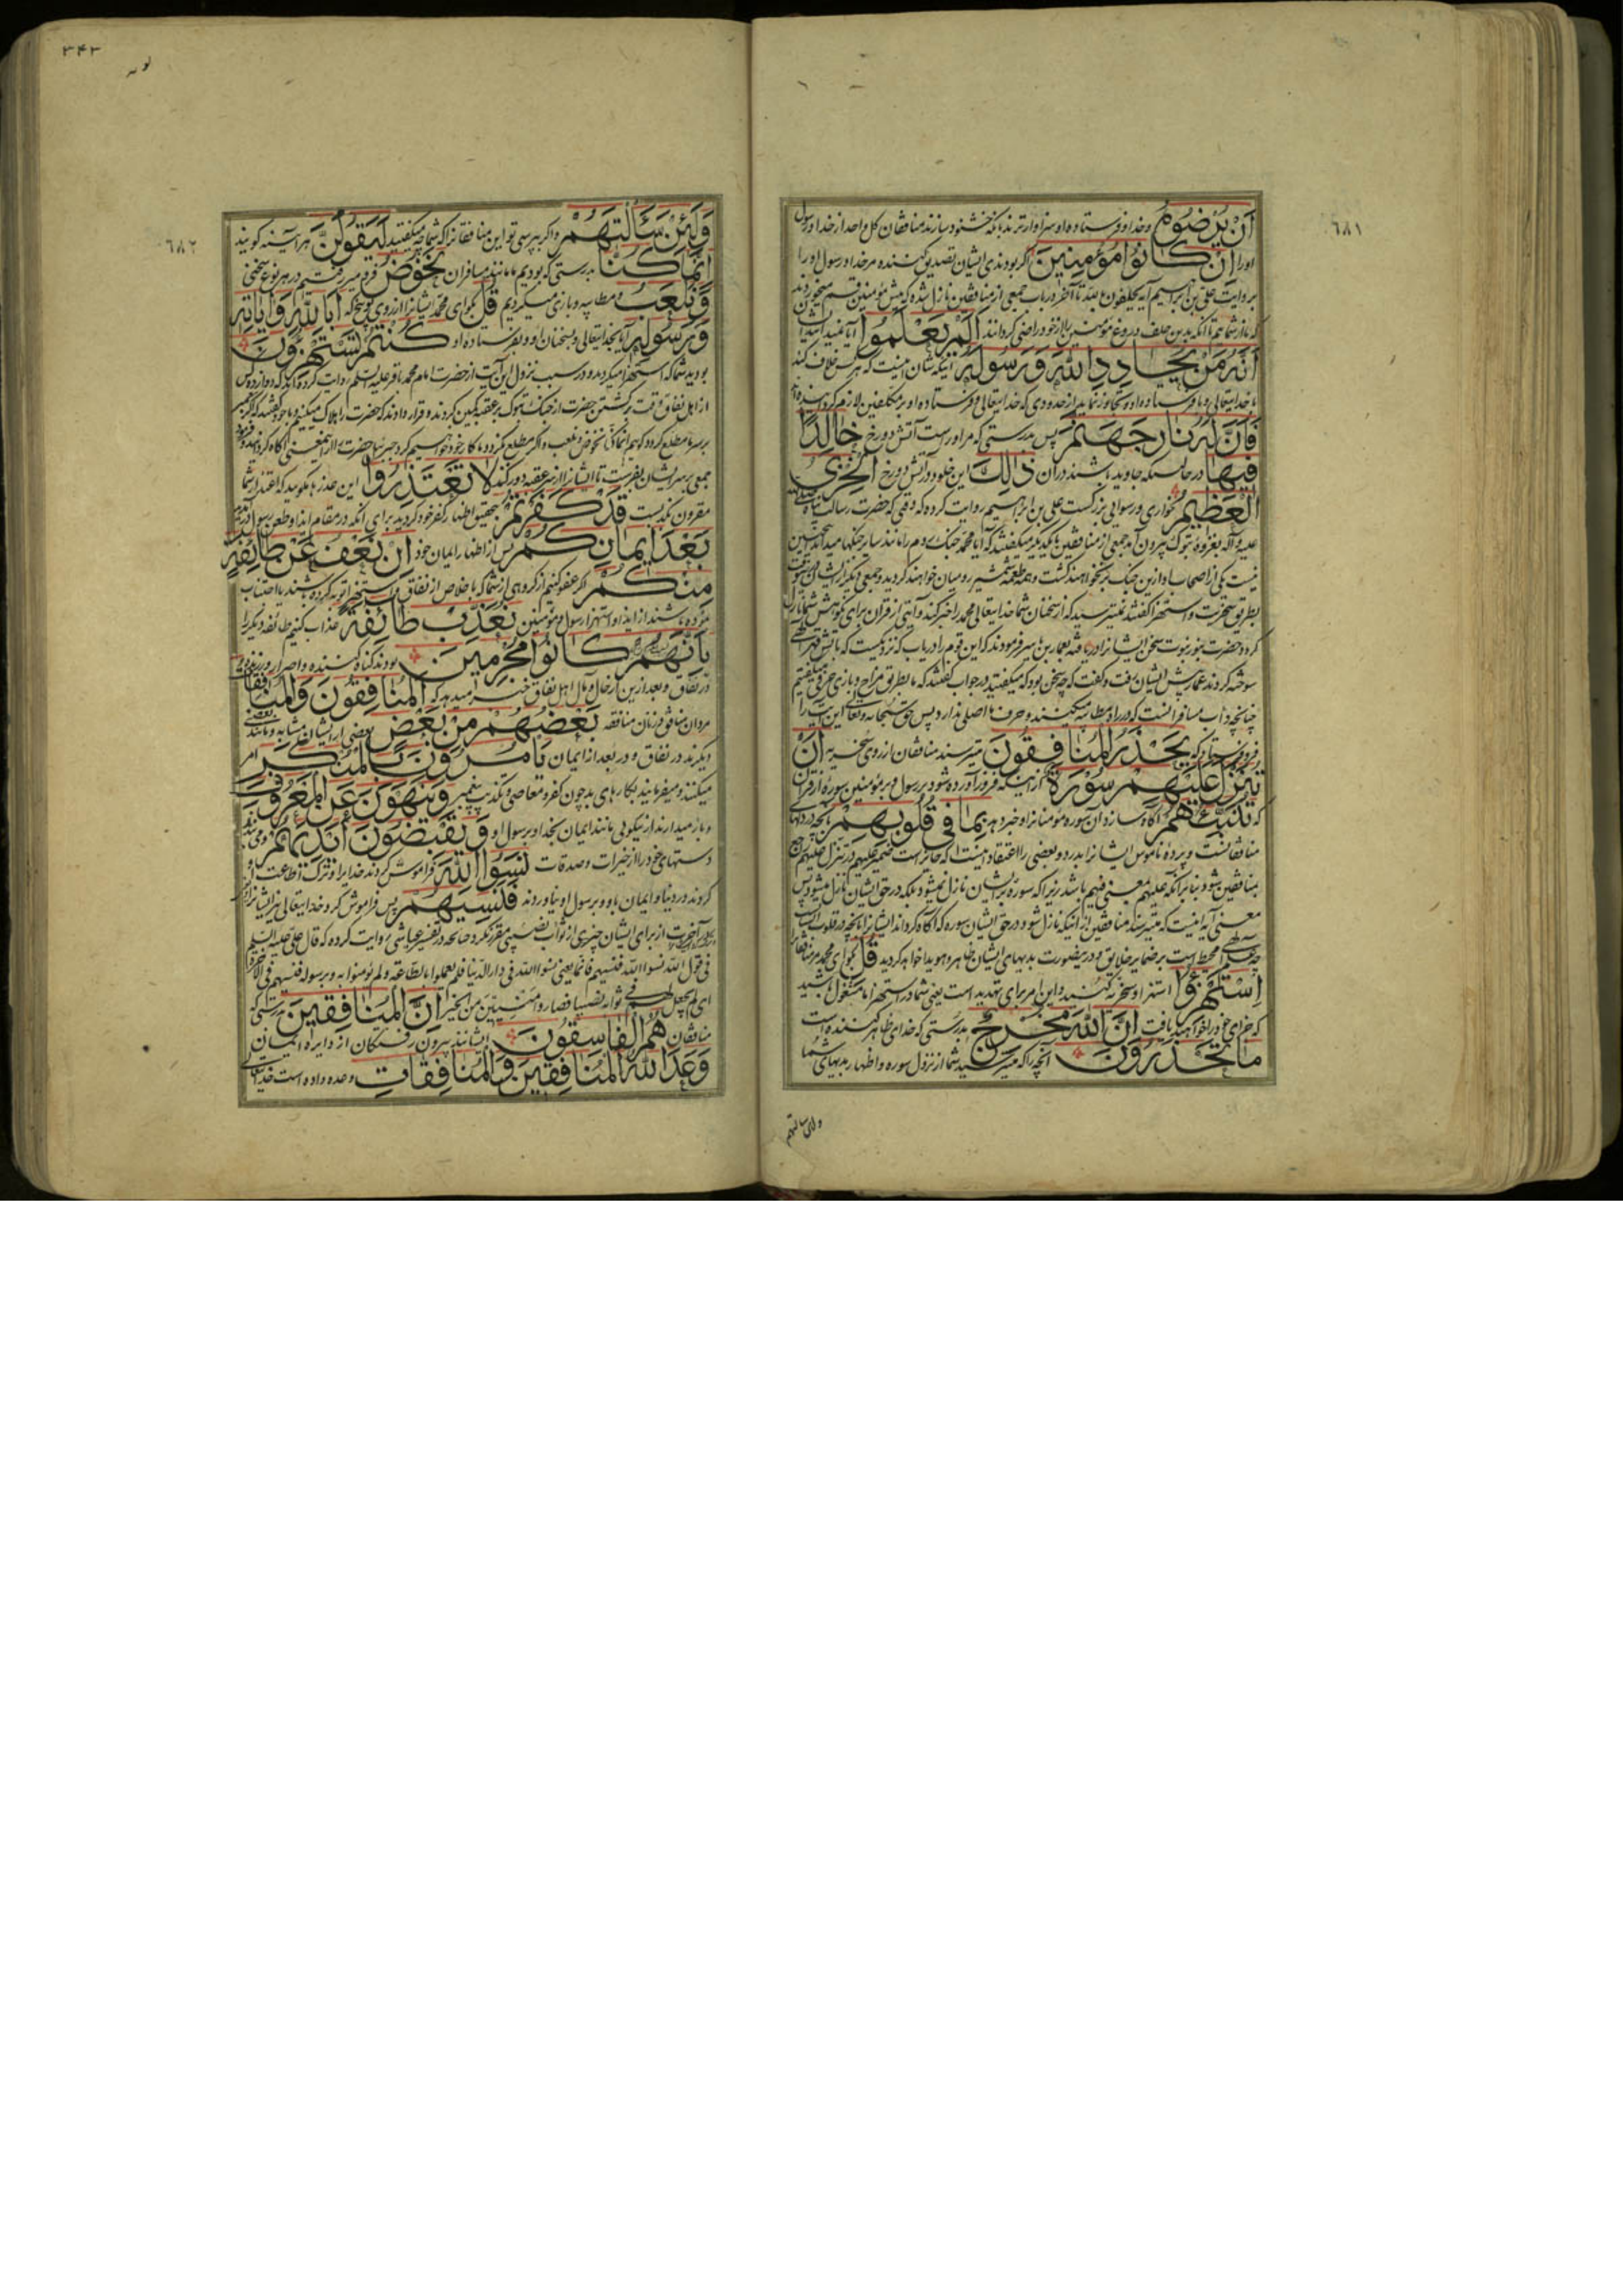 ٦٨١
أَنْ يُرْضُوهُ وخدا و فرستاده او سزاوارترند بآنکه خشنود سازند منافقان کل واحد از خدا و رسول
او را إِنْ كَانُوا مُؤْمِنِينَ اگر بودندی ایشان تصدیق کننده مر خدا و رسول او را
بروایت علی بن ابراهیم آیه یحلفون بالله تا آخر در باب جمعی از منافقین نازل شده که پیش مؤمنین قسم میخوردند
که ما از شمائیم تا آنکه بدین حلف دروغ مؤمنین را از خود راضی گردانند أَلَمْ يَعْلَمُوا آیا
أَنَّهُ مَنْ يُحَادِدِ اللَّهَ وَرَسُولَهُ آنکه شان اینست که هر کس خلاف کند
با خدایتعالی و با فرستاده او و تجاوز نماید از حدودی که خدایتعالی و فرستاده او بر مکلفین لازم کرده
فَأَنَّ لَهُ نَارَ جَهَنَّمَ پس بدرستی که مر او راست آتش دوزخ خَالِدًا
فِيهَا در حالتیکه جاوید باشند در آن ذَٰلِكَ این خلود در آتش دوزخ الْخِزْيُ
الْعَظِيمُ خواری و رسوایی بزرگست علی بن ابراهیم روایت کرده که وقتی که حضرت رسالت پناه
علیه و آله بغزوه تبوک بیرون آمد جمعی از منافقین با یکدیگر میگفتند که آیا محمد جنگ روم را مانند سایر جنگها میداند
نیست یکی از اصحاب او ازین جنگ بر نخواهند گشت و همه طعمه شمشیر رومیان خواهند گردید و جمعی دیگر از ایشان
بطریق سخریت و استهزا گفتند نمیترسید که از سخنان شما خدایتعالی محمد را خبر کند و آیتی از قرآن برای نکوهش شما نازل
کردد حضرت بنور نبوت سخن ایشانرا دریافته بعمار بن یاسر فرمودند که این قوم را دریاب که نزدیکست که بآتش قهر الهی
سوخته گردند عمار پیش ایشان رفت و گفت که چه سخن بود که میگفتید در جواب گفتند که ما بطریق مزاح و بازی حرفی میگفتیم
چنانچه داب مسافرانست که در راه مطایبه میکنند و حرف ما اصلی ندارد پس حق سبحانه و تعالی این آیت را
فرو فرستاد که يَحْذَرُ الْمُنَافِقُونَ میترسند منافقان از روی سخریه أَنْ
تُنَزَّلَ عَلَيْهِمْ سُورَةٌ از اینکه فرو آورده شود بر رسول و بر مؤمنین سوره از قرآن
که تُنَبِّئُهُمْ آگاه سازد آن سوره مؤمنانرا و خبر دهد بِمَا فِي قُلُوبِهِمْ بآنچه در دلهای
منافقانست و پرده ناموس ایشانرا بدرد و بعضی را اعتقاد اینست که جایز است ضمیر علیهم در تنزل علیهم راجع
بمنافقین شود بنابر آنکه علیهم بمعنی فیهم باشد زیرا که سوره بر ایشان نازل نمیشود بلکه در حق ایشان نازل میشود پس
معنی آیه اینست که میترسند منافقین از آنکه نازل شود در حق ایشان سوره که آگاه گرداند ایشانرا بآنچه در قلوب ایشان
محیط است بر ضمایر خلایق و درینصورت بدیهای ایشان ظاهر و هویدا خواهد گردید قُلِ بگو ای محمد مر منافقانرا
اسْتَهْزِئُوا استهزا و سخریه کنید و این امر برای تهدید است یعنی شما در استهزا مشغول باشید
که جزای خود را خواهید یافت إِنَّ اللَّهَ مُخْرِجٌ بدرستی که خدای ظاهر کننده است
مَا تَحْذَرُونَ آنچه را که میترسید شما از نزول سوره و اظهار بدیهای شما
ولئن سالتهم
٣٤٢
٦٨٢
وَلَئِنْ سَأَلْتَهُمْ واگر بپرسی تو این منافقانرا که شما چه میگفتید لَيَقُولُنَّ هر آینه گویند
إِنَّمَا كُنَّا بدرستی که بودیم ما مانند مسافران نَخُوضُ فرو میرفتیم در هر نوع سخنی
وَنَلْعَبُ و مطایبه و بازی میکردیم قُلْ بگو ای محمد ایشانرا از روی توبیخ که أَبِاللَّهِ وَآيَاتِهِ
وَرَسُولِهِ آیا بخدایتعالی و بسخنان او و بفرستاده او كُنْتُمْ تَسْتَهْزِئُونَ
بودید شما که استهزا میکردید و در سبب نزول این آیت از حضرت امام محمد باقر علیه السلم روایت کرده اند که دوازده کس
از اهل نفاق وقت برگشتن حضرت از جنگ تبوک بر عقبه کمین کردند و قرار دادند که حضرت را هلاک میکنیم و با خود گفتند که اگر
بر سر ما مطلع گردد گوییم انما کنا نخوض و نلعب و اگر مطلع نگردد ما کار خود خواهیم کرد جبرئیل حضرت را از این معنی آگاه کرد
جمعی بر سر ایشان بفرست تا ایشانرا از سر عقبه دور کنند لَا تَعْتَذِرُوا این عذرها مگویید که اعتذار شما
مقرون بکذبست قَدْ كَفَرْتُمْ بتحقیق اظهار کفر خود کردید برای آنکه در مقام ایذا و طعن رسول درآمدید
بَعْدَ إِيمَانِكُمْ پس از اظهار ایمان خود إِنْ نَعْفُ عَنْ طَائِفَةٍ
مِنْكُمْ اگر عفو کنیم از گروهی از شما که با خلاص از نفاق و استهزا توبه کرده باشند یا اجتناب
کرده باشند از ایذا و استهزا رسول و مؤمنین نُعَذِّبْ طَائِفَةً عذاب کنیم طائفه دیگر را
بِأَنَّهُمْ كَانُوا مُجْرِمِينَ بودند گناه کننده و اصرار ورزنده
در نفاق و بعد ازین از حال و مآل اهل نفاق خبر میدهد که الْمُنَافِقُونَ وَالْمُنَافِقَاتُ
مردان منافق و زنان منافقه بَعْضُهُمْ مِنْ بَعْضٍ بعضی از ایشان مشابه و مانند بعضی
دیگرند در نفاق و در بعد از ایمان يَأْمُرُونَ بِالْمُنْكَرِ امر
میکنند و میفرمایند بکارهای بد چون کفر و معاصی و تکذیب پیغمبر وَيَنْهَوْنَ عَنِ الْمَعْرُوفِ
و باز میدارند از نیکویی مانند ایمان بخدا و برسول او وَيَقْبِضُونَ أَيْدِيَهُمْ و می بندند
دستهای خود را از خیرات و صدقات نَسُوا اللَّهَ فراموش کردند خدایرا و ترک اطاعت او
کردند در دنیا و ایمان باو و برسول او نیاوردند فَنَسِيَهُمْ پس فراموش کرد خدایتعالی نیز ایشانرا
در آخرت از برای ایشان چیزی از ثواب نصیبی مقرر نکرد چنانچه در تفسیر عیاشی روایت کرده که قال علی علیه السلم
فی قول الله نسوا الله فنسیهم فانما یعنی نسوا الله فی دار الدنیا فلم یعملوا بالطاعة و لم یؤمنوا به و برسوله فنسیهم فی الآخرة
ای لم یجعل لهم فی ثوابه نصیبا فصاروا منسیین من الخیر إِنَّ الْمُنَافِقِينَ بدرستی که
منافقان هُمُ الْفَاسِقُونَ ایشانند بیرون رفتگان از دایره ایمان
وَعَدَ اللَّهُ الْمُنَافِقِينَ وَالْمُنَافِقَاتِ وعده داده است خدایتعالی